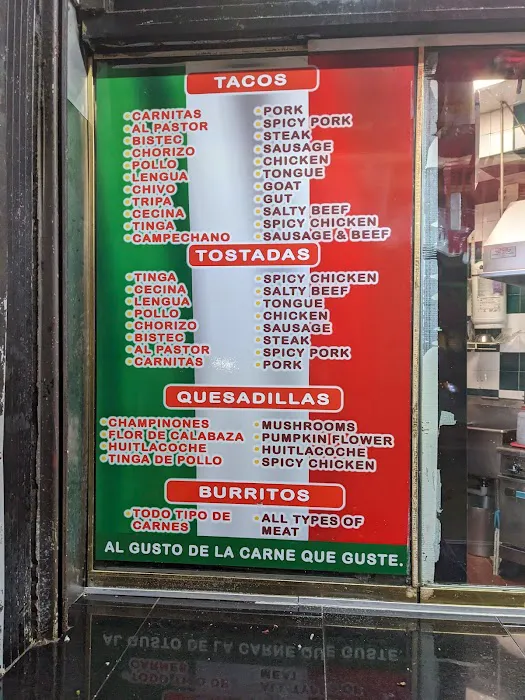 TACOS
CARNITAS PORK
AL PASTOR SPICY PORK
BISTEC STEAK
CHORIZO SAUSAGE
POLLO CHICKEN
LENGUA TONGUE
CHIVO GOAT
TRIPA GUT
CECINA SALTY BEEF
TINGA SPICY CHICKEN
CAMPECHANO SAUSAGE & BEEF
TOSTADAS
TINGA SPICY CHICKEN
CECINA SALTY BEEF
LENGUA TONGUE
POLLO CHICKEN
CHORIZO SAUSAGE
BISTEC STEAK
AL PASTOR SPICY PORK
CARNITAS PORK
QUESADILLAS
CHAMPINONES MUSHROOMS
FLOR DE CALABAZA PUMPKIN FLOWER
HUITLACOCHE HUITLACOCHE
TINGA DE POLLO SPICY CHICKEN
BURRITOS
TODO TIPO DE ALL TYPES OF
CARNES MEAT
AL GUSTO DE LA CARNE QUE GUSTE.